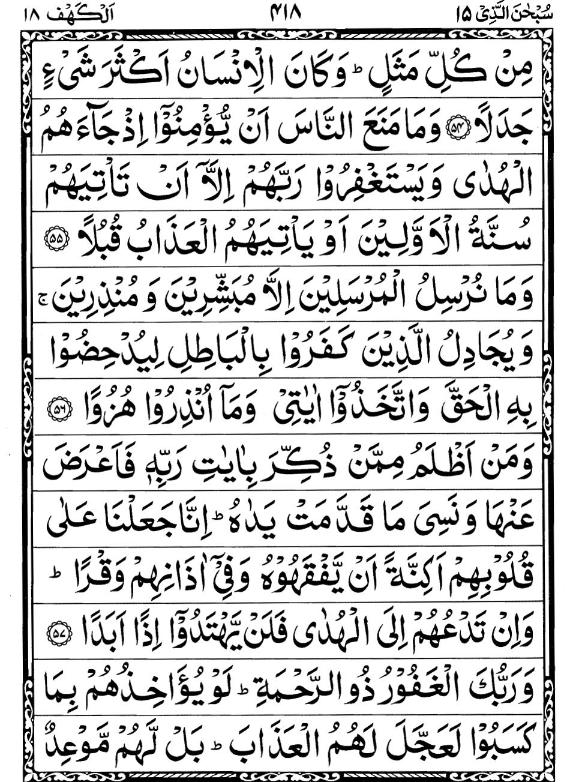 سُبْحٰنَ الَّذِیْۤ ۱۵
۴۱۸
اَلْكَهْف ۱۸
مِنْ كُلِّ مَثَلٍ ؕ وَكَانَ الْاِنْسَانُ اَكْثَرَ شَیْءٍ
جَدَلًا ۝۵۴ وَمَا مَنَعَ النَّاسَ اَنْ یُّؤْمِنُوْۤا اِذْ جَآءَهُمُ
الْهُدٰی وَیَسْتَغْفِرُوْا رَبَّهُمْ اِلَّاۤ اَنْ تَاْتِیَهُمْ
سُنَّةُ الْاَوَّلِیْنَ اَوْ یَاْتِیَهُمُ الْعَذَابُ قُبُلًا ۝۵۵
وَمَا نُرْسِلُ الْمُرْسَلِیْنَ اِلَّا مُبَشِّرِیْنَ وَ مُنْذِرِیْنَ ۚ
وَیُجَادِلُ الَّذِیْنَ كَفَرُوْا بِالْبَاطِلِ لِیُدْحِضُوْا
بِهِ الْحَقَّ وَاتَّخَذُوْۤا اٰیٰتِیْ وَمَاۤ اُنْذِرُوْا هُزُوًا ۝۵۶
وَمَنْ اَظْلَمُ مِمَّنْ ذُكِّرَ بِاٰیٰتِ رَبِّهٖ فَاَعْرَضَ
عَنْهَا وَنَسِیَ مَا قَدَّمَتْ یَدٰهُ ؕ اِنَّا جَعَلْنَا عَلٰی
قُلُوْبِهِمْ اَكِنَّةً اَنْ یَّفْقَهُوْهُ وَفِیْۤ اٰذَانِهِمْ وَقْرًا ؕ
وَاِنْ تَدْعُهُمْ اِلَی الْهُدٰی فَلَنْ یَّهْتَدُوْۤا اِذًا اَبَدًا ۝۵۷
وَرَبُّكَ الْغَفُوْرُ ذُو الرَّحْمَةِ ؕ لَوْ یُؤَاخِذُهُمْ بِمَا
كَسَبُوْا لَعَجَّلَ لَهُمُ الْعَذَابَ ؕ بَلْ لَّهُمْ مَّوْعِدٌ